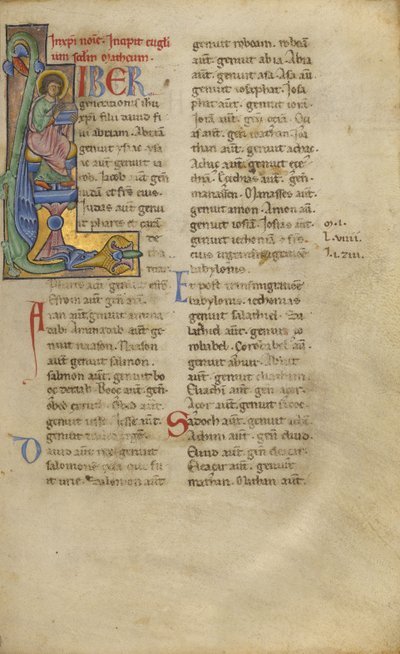 In xpi noie. Incipit eugli
um scdm Matheum.
LIBER
generationis ihu
xpi filii dauid fi
lii abraam. Abraã
genuit ysaac. ysa
ac aut genuit ia
cob. Iacob aut gen
iudã et frs eius.
Iudas aut genu
it phares et zarã
de tha
mar.
Phares aut genuit es
Esrom aut gen arã.
Aran aut genuit amina
dab. Aminadab aut ge
nuit naason. Naason
aut genuit salmon.
salmon aut genuit bo
oz de raab. Booz aut gen
obed ex ruth. Obed aut
genuit iesse. iesse aut
genuit dauid regem.
Dauid aut rex genuit
salomonem ex ea que fu
it urie. Salomon aut
genuit roboam. roboã
aut genuit abia. Abia
aut genuit asa. Asa aut
genuit iosaphat. Iosa
phat aut genuit iorã.
Iorã aut gen oziã. Ozi
as aut genuit ioathan. Ioa
than aut genuit achaz.
Achaz aut genuit eze
chiã. Ezechias aut gen
manassen. Manasses aut
genuit amon. Amon aut
genuit iosiã. Iosias aut
genuit iechoniã & frs
eius in transmigratione
babylonis.
Et post transmigratione
babylonis. iechonias
genuit salathiel. Sa
lathiel aut genuit zo
robabel. Zorobabel aut
genuit abiut. Abiut
aut genuit eliachim.
Eliachi aut gen azor.
Azor aut genuit sadoc.
Sadoch aut genuit achim
Achim aut gen eliud.
Eliud aut gen eleazar.
Eleazar aut genuit
mathan. Mathan aut
M. I.
L. VIIII.
I. XIII.